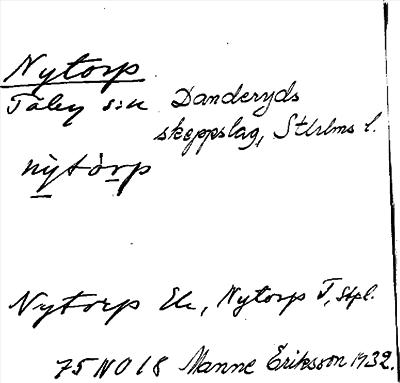 Nytorp
Täby sn Danderyds
skeppslag, Sthlms l.
nỳtòrp
Nytorp Ek, Nytorp T, Stpl.
75 NO 18 Manne Eriksson 1932.